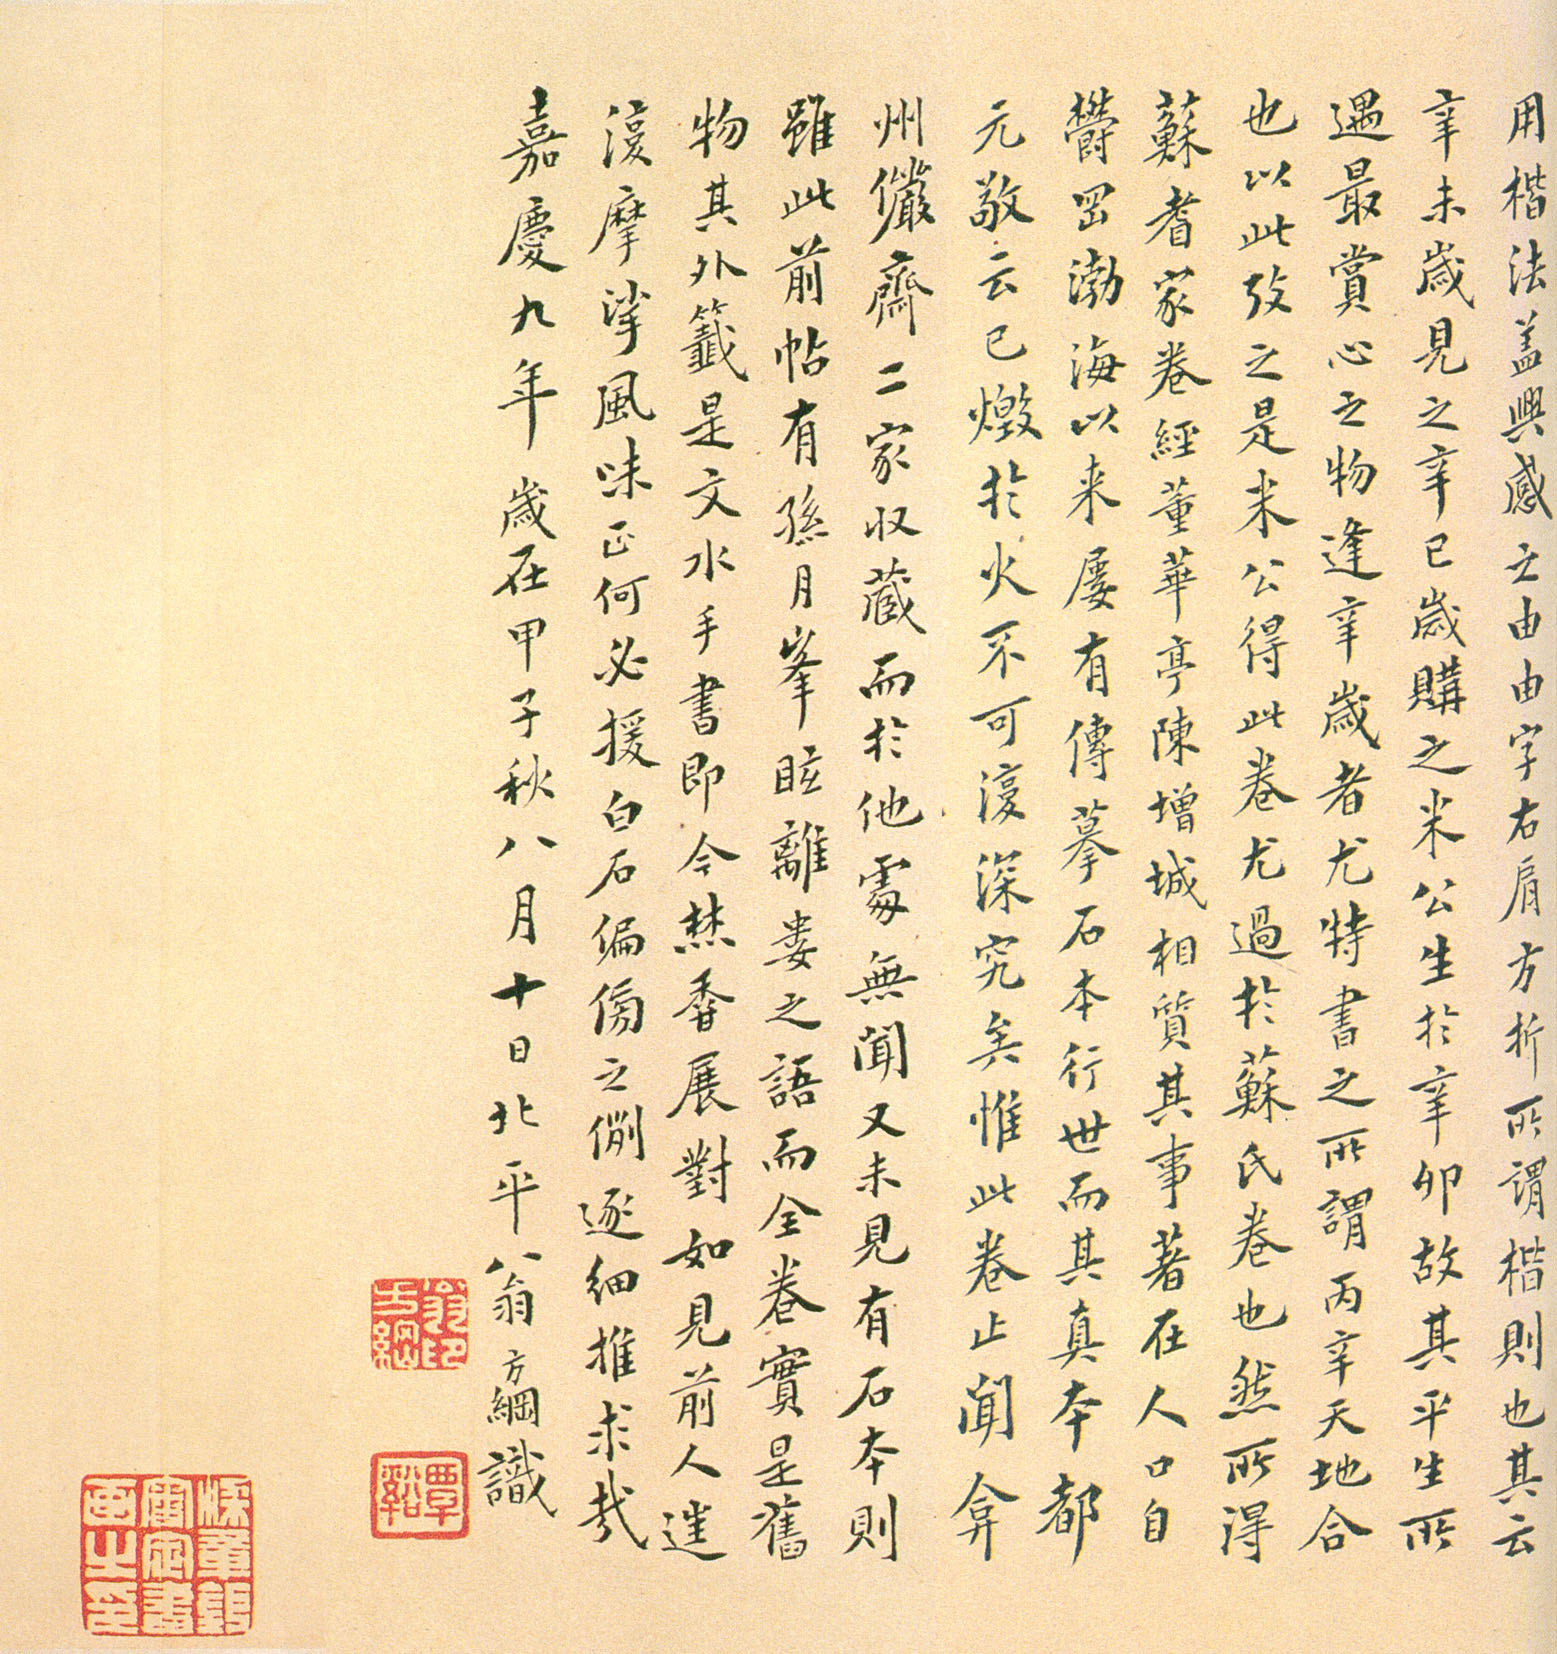 用楷法盖興感之由由字右肩方折所謂楷則也其云
辛未歲見之辛巳歲購之米公生於辛卯故其平生所
遇最賞心之物逢辛歲者尤特書之所謂丙辛天地合
也以此攷之是米公得此卷尤過於蘇氏卷也然所得
蘇耆家卷經董華亭陳增城相質其事著在人口自
鬱岡渤海以来屢有傳摹石本行世而其真本都
元敬云已燬於火不可復深究矣惟此卷止聞弇
州儼齋二家收藏而於他處無聞又未見有石本則
雖此前帖有孫月峯眩離婁之語而全卷實是舊
物其外籤是文水手書即今焚香展對如見前人進
復摩挲風味正何必援白石偏傍之例逐細推求哉
嘉慶九年歲在甲子秋八月十日北平翁方綱識
翁方綱印
覃谿